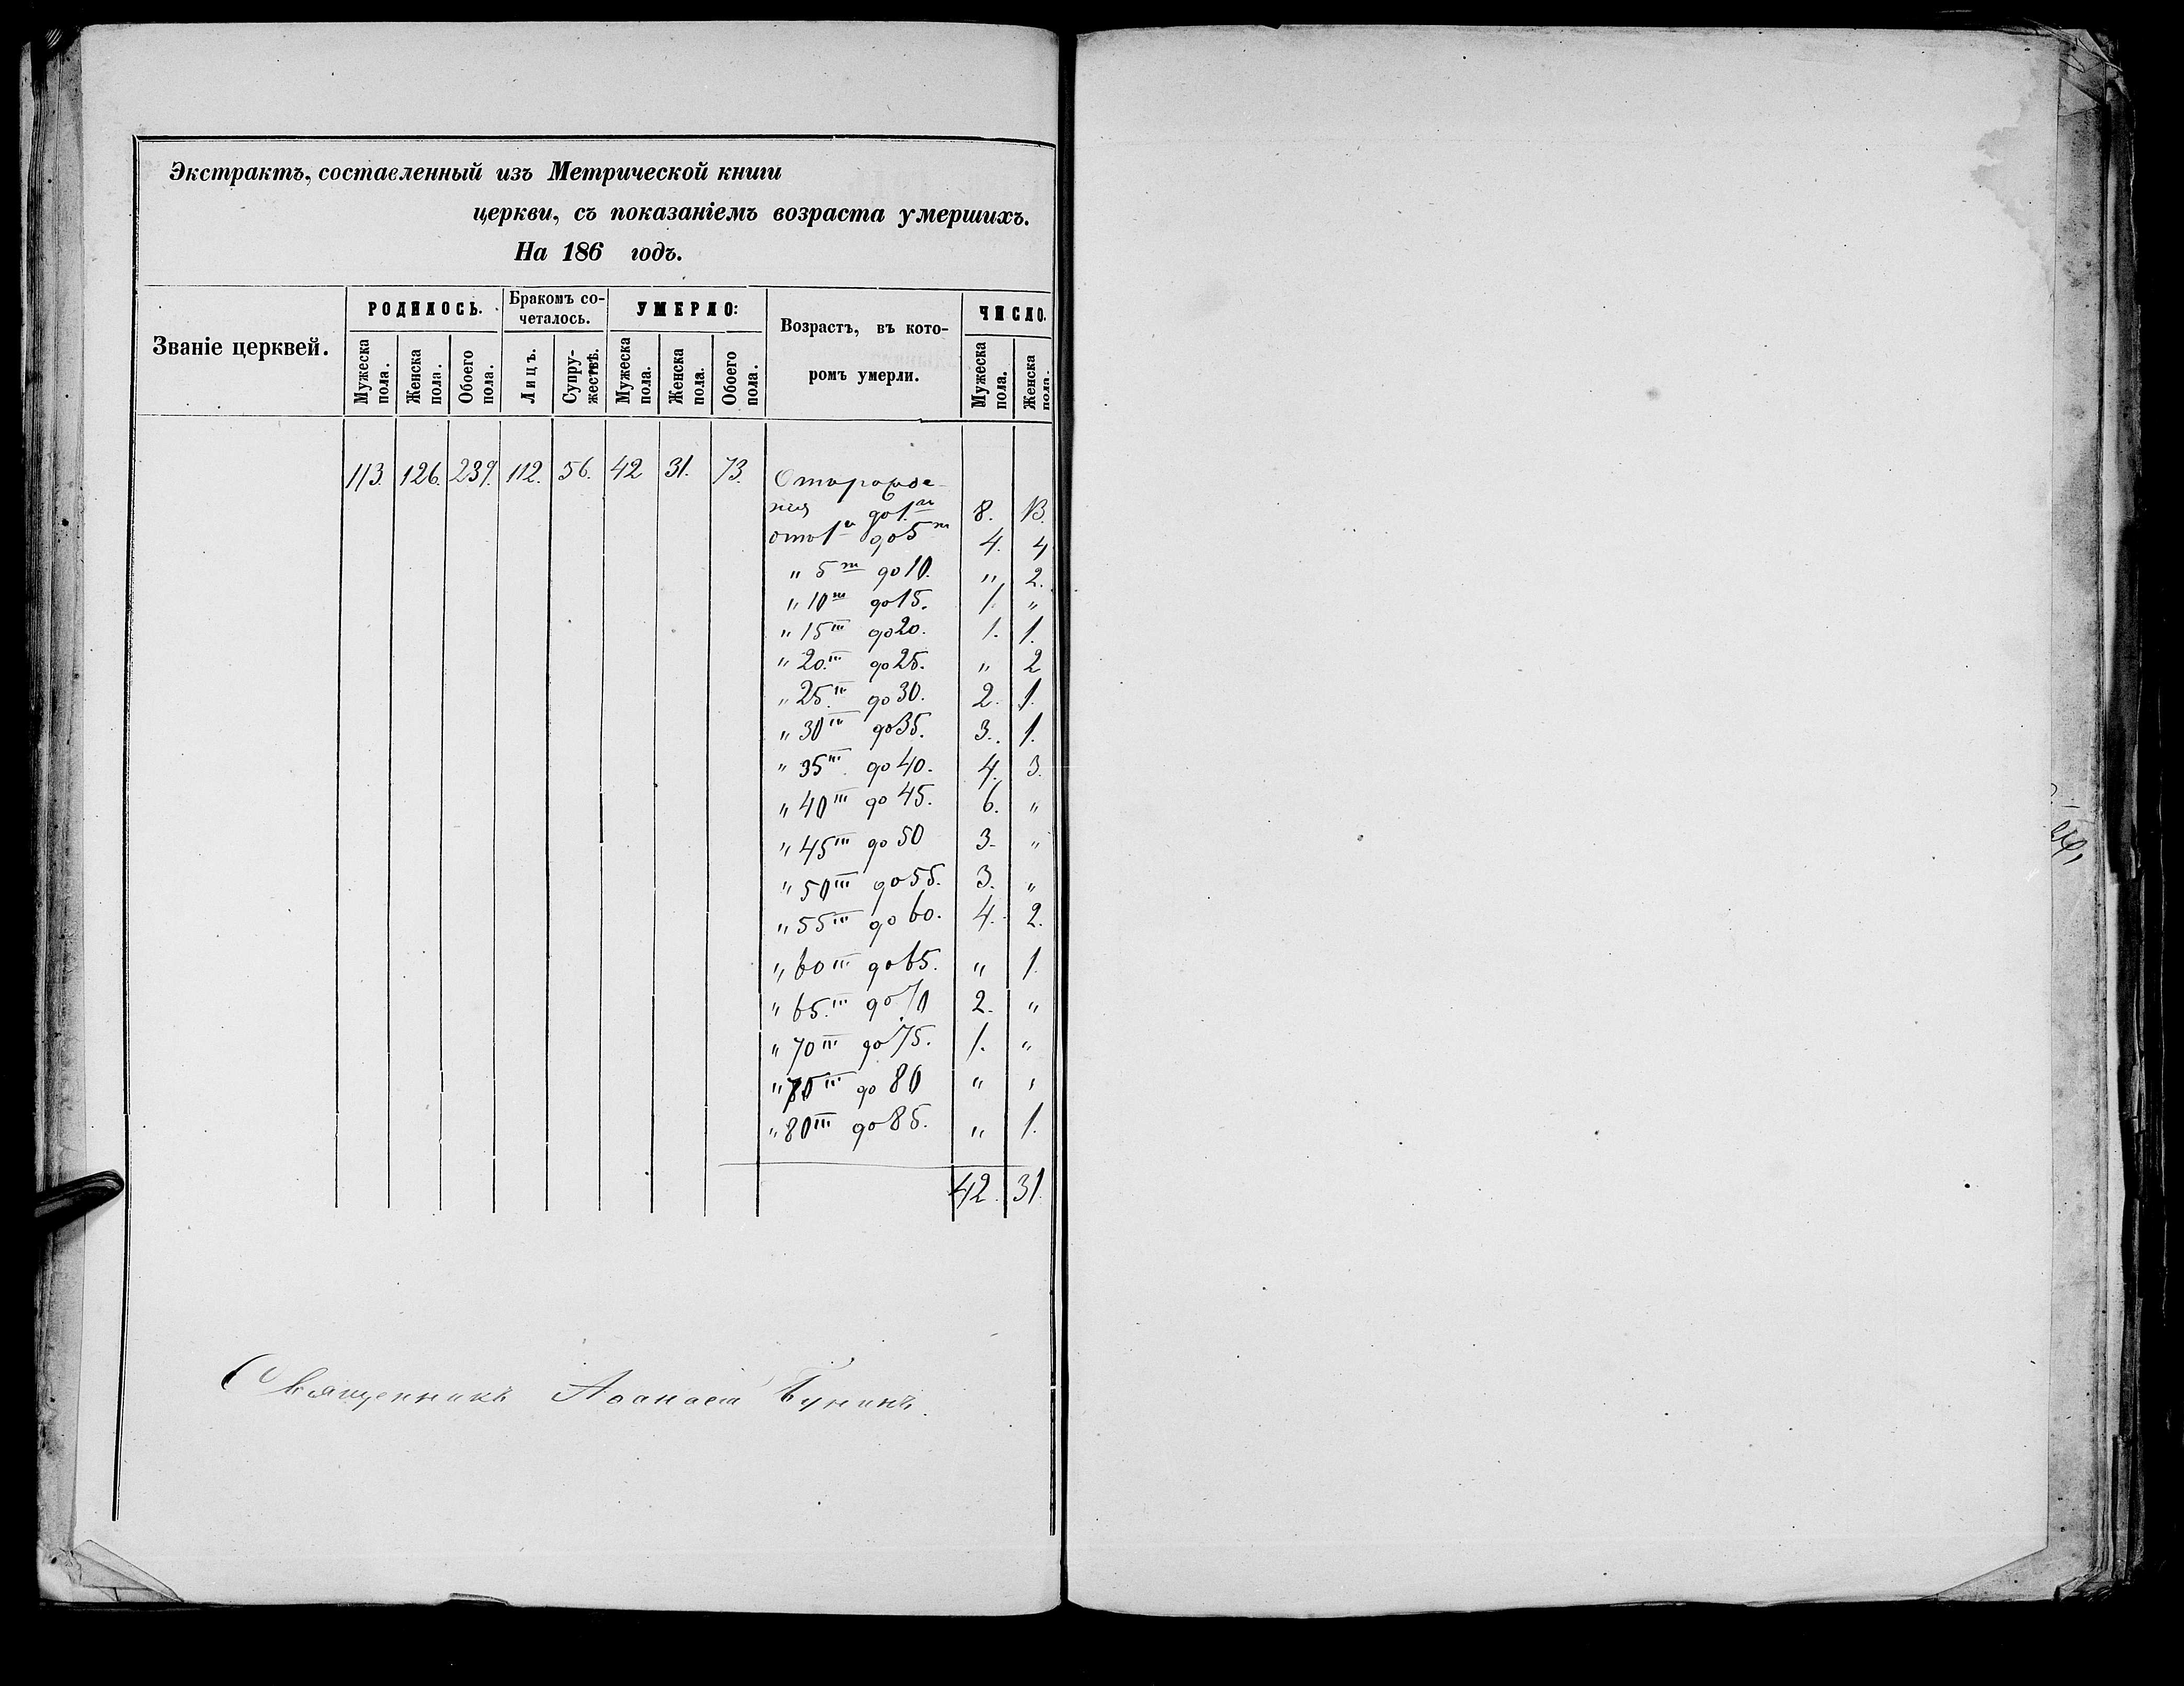 Экстрактъ, составленный изъ Метрической книги
церкви, съ показаніемъ возраста умершихъ.
На 186 годъ.
Званіе церквей. РОДИЛОСЬ. Бракомъ со- четалось. УМЕРЛО: Возрастъ, въ кото- ромъ умерли. ЧИСЛО.
Мужеска пола. Женска пола. Обоего пола. Лицъ. Супру- жествъ. Мужеска пола. Женска пола. Обоего пола. Мужеска пола. Женска пола.
113. 126. 239. 112. 56. 42 31. 73. Отърожде-
нія до 1.го 8. 13.
отъ 1го до 5ти 4. 4
" 5ти до 10. " 2.
" 10ти до 15. 1. "
" 15ти до 20. 1. 1.
" 20.ти до 25. " 2
" 25.ти до 30. 2. 1.
" 30ти до 35. 3. 1.
" 35ти до 40. 4. 3.
" 40ти до 45. 6. "
" 45ти до 50 3. "
" 50ти до 55. 3. "
" 55ти до 60. 4. 2.
" 60ти до 65. " 1.
" 65.ти до 70 2. "
" 70ти до 75. 1. "
" ти до 80 " "
" 80ти до 85. " 1.
42. 31.
Священникъ Аѳанасій Бунинъ.